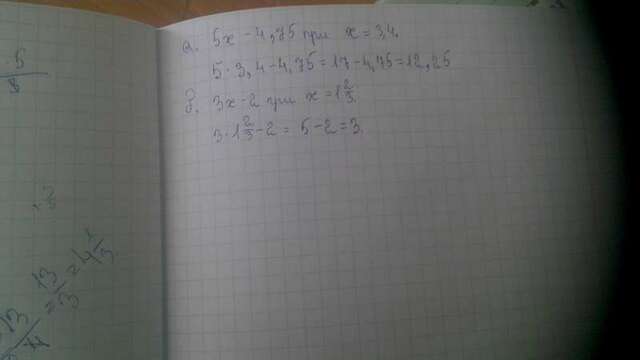 а. 5x - 4,75 при x = 3,4.
5 · 3,4 - 4,75 = 17 - 4,75 = 12,25
б. 3x - 2 при x = 1 2/3.
3 · 1 2/3 - 2 = 5 - 2 = 3.
13/3 = 4 1/3